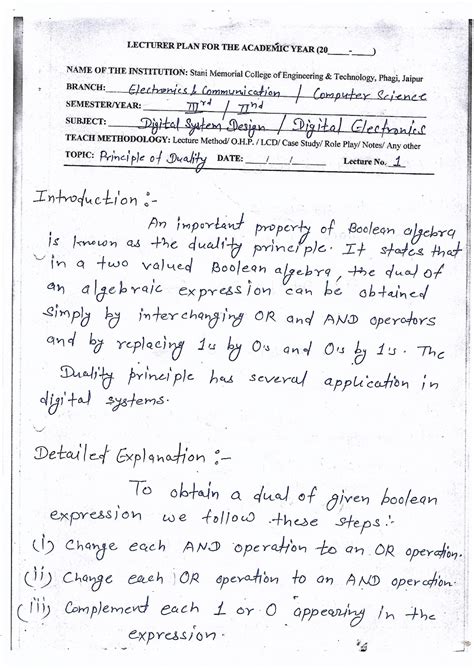 LECTURER PLAN FOR THE ACADEMIC YEAR (20____-____)
NAME OF THE INSTITUTION: Stani Memorial College of Engineering & Technology, Phagi, Jaipur
BRANCH: Electronics & Communication / Computer Science
SEMESTER/YEAR: IIIrd / IInd
SUBJECT: Digital System Design / Digital Electronics
TEACH METHODOLOGY: Lecture Method/ O.H.P. / LCD/ Case Study/ Role Play/ Notes/ Any other
TOPIC: Principle of Duality DATE: ___/___/___ Lecture No. 1
Introduction :-
An important property of Boolean algebra
is known as the duality principle. It states that
in a two valued Boolean algebra, the dual of
an algebraic expression can be obtained
simply by interchanging OR and AND operators
and by replacing 1's by 0's and 0's by 1's. The
Duality principle has several application in
digital systems.
Detailed Explanation :-
To obtain a dual of given boolean
expression we follow these steps :-
(i) Change each AND operation to an OR operation.
(ii) Change each OR operation to an AND operation.
(iii) Complement each 1 or 0 appearing in the
expression.